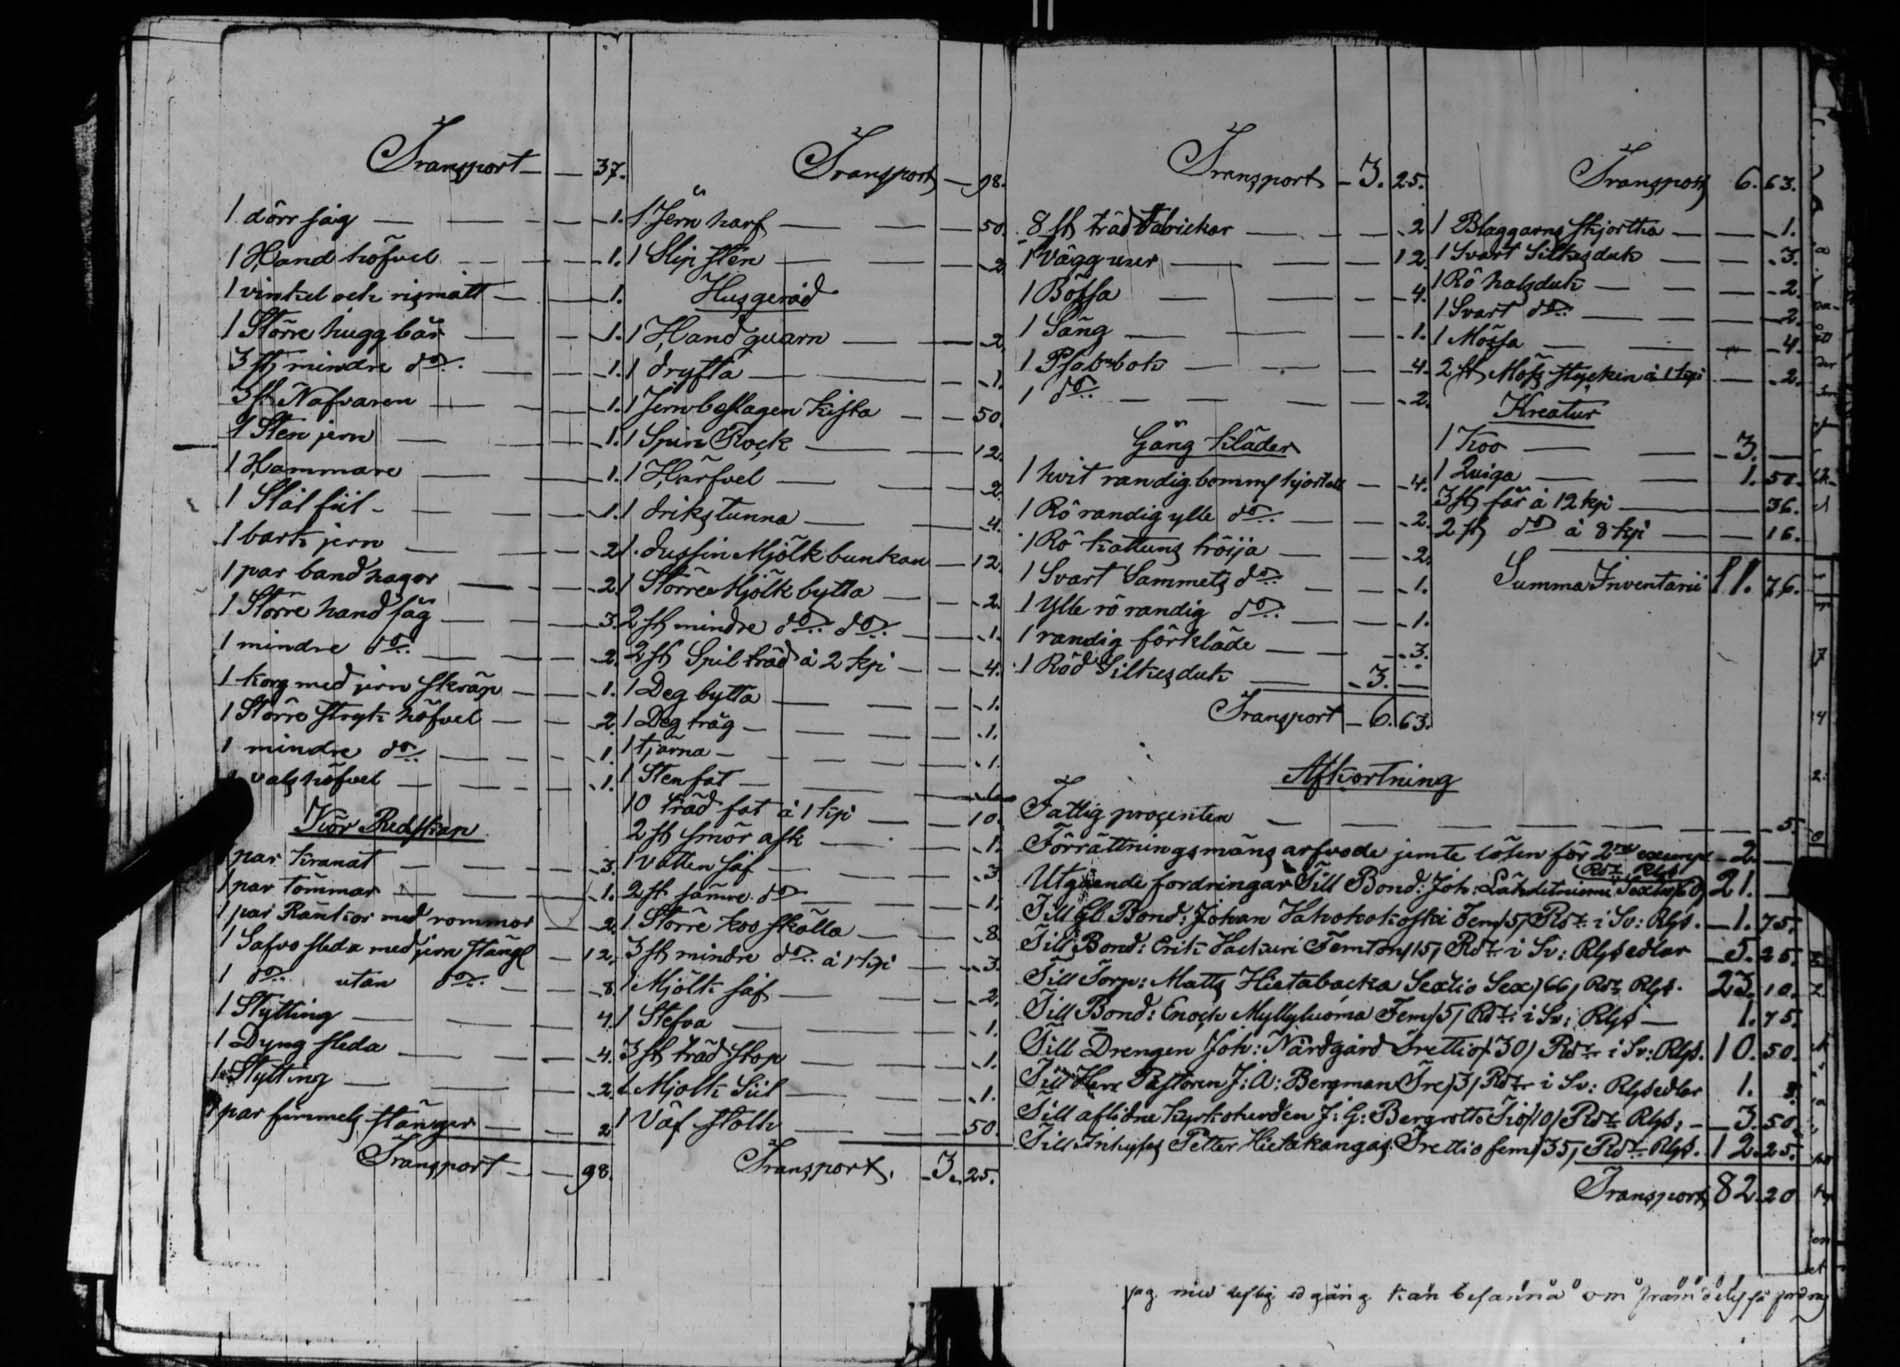 Transport — — 37.
1 dörr såg — — — 1.
1 Hand höfvel — — — 1.
1 vinkel och rismått — — 1.
1 Större hugg bår — — 1.
3 st mindre do — — 1.
3 st Näfvaren — — 1.
1 Sten jern — — 1.
1 Hammare — — 1.
1 Stål fiil — — 1.
1 bark jern — — 2
1 par band hagor — — 2
1 Större hand såg — — 3.
1 mindre do — — 2.
1 korg med jern skräp — — 1.
1 Större stryk höfvel — — 2
1 mindre do — — 1.
1 vals höfvel — — 1.
Kör Redskap
1 par kranat — — 3.
1 par tömmar — — 1.
1 parRänkor med rommor — 2.
1 Safvo sleda med jern stängl — 12.
1 do utan do — — 8.
1 Stytting — — 4.
1 Dyng sleda — — 4.
1 Stytting — — 2.
1 par fimmels stänger — — 2
Transport — — 98.
Transport — 98.
1 Jern harf — — 50.
1 Slip sten — — 2
Husgeråd
1 Hand quarn — — 2.
1 dryfta — — 1.
1 Jern beslagen kista — — 50.
1 Spin Rock — — 12.
1 Härfvel — — 2.
1 driks tunna — — 4.
1 dussin Mjölk bunkan — 12.
1 Större Mjölk bytta — — 2.
2 st mindre do do — — 1.
2 st Spil träd à 2 kpi — — 4.
1 Deg bytta — — 1.
1 Deg tråg — — 1.
1 tjärna — — 1.
1 Sten fat — — 1.
10 träd fat à 1 kpi — — 10.
2 st smör ask — — 1.
1 vatten såf — — 3
2 st sämre do — — 1.
1 Större koo skälla — — 8.
3 st mindre do à 1 kpi — — 3.
1 Mjölk såf — — 2.
1 Stefva — — 1.
3 st träd stop — — 1.
1 Mjölk Siil — — 1.
1 Väf stolk — — 50.
Transport. — 3. 25.
Transport — 3. 25.
8 st träd tabrickar — — 2
1 Vägg uur — — 12.
1 Bössa — — 4.
1 Säng — — 1.
1 Psalmbok — — 4.
1 do — — 2.
Gång kläder
1 hvit randig bomms kjortel — 4.
1 Rö randig ylle do — — 2.
1 Rö kattuns tröija — — 2.
1 Svart Sammets do — — 1.
1 Ylle rö randig do — — 1.
1 randig förkläde — — 3.
1 Röd Silkesduk — 3. —
Transport — 6. 63.
Transport 6. 63.
1 Blaggarns skjortha — — 1.
1 Svart Silkesduk — — 3.
1 Rö halsduk — — 2.
1 Svart do — — 2.
1 Mössa — — 4.
2 st Möss stycken à 1 kpi — 2.
Kreatur
1 Koo — — 3. —
1 Quiga — — 1. 50.
3 st får à 12 kpi — — 36.
2 st do à 8 kpi — — 16.
Summa Inventarii 11. 76.
Afkortning
Fattig procenten — — 5.
Förrättningsmäns arfvode jemte lösen för 2ne exempl — 2 —
Utgående fordringar Till Bond: Joh: Lähdetniemi Sextio/60/ Rdr Rgs 21. —
Till Gl. Bond: Johan Valvokoski Fem/5/ Rdr i Sv: Rgs. — 1. 75.
Till Bond: Erik Hackuri Femton/15/ Rdr i Sv: Rgsedlar — 5. 25.
Till Torp: Matts Hietabacka Sextio Sex/66/ Rdr Rgs. 23. 10.
Till Bond: Enoch Myllyluoma Fem/5/ Rdr i Sv: Rgs — 1. 75.
Till Drengen Joh: Nårdgård Trettio/30/ Rdr i Sv: Rgs. 10. 50.
Till Herr Pastoren J: A: Bergman Tre/3/ Rdr i Sv: Rgsedlar 1. 5.
Till aflidne kyrkoherden J: G: Bergroth Tio/10/ Rdr Rgs: — 3. 50.
Till Inhyses Petter Hietakangas Trettio fem/35/ Rdr Rgs. 12. 25.
Transport 82. 20
jag med ed gång kan besanna om